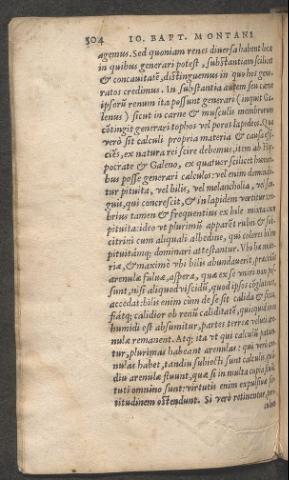 504 IO. BAPT. MONTANI
agemus. Sed quoniam renes diversa habent loca
in quibus generari potest, substantiam scilicet
& concavitatē, distinguemus in quo hos gene
ratos credimus. In substantia autem seu carne
ipsorū renum ita possunt generari (inquit Ga
lenus) sicut in carne & musculis membrorum
cōtingit generari tophos vel poros lapideos. Qua
verò sit calculi propria materia & causa effi
ciēs, ex natura rei scire debemus, item ab Hip
pocrate & Galeno, ex quatuor scilicet humori
bus posse generari calculos: vel enim dominat
tur pituita, vel bilis, vel melancholia, vel san
guis, qui concrescit, & in lapidem vertitur
brius tamen & frequentius ex bile mixta cum
pituita: ideo vt plurimū apparēt rubri & sub
citrini cum aliquali albedine, qui colores bilem
pituitamq; dominari attestantur. Vbi hæ mate
riæ, & maximè vbi bilis abundaverit, præcedūt
arenulæ fulvæ, asperæ, quæ ex se vniri non pos
sunt, nisi aliquod viscidū, quod ipsos cōglutinet,
accedat: bilis enim cùm de se sit calida & sicca,
fiátq; calidior ob renū caliditatē, quicquid in ea
humidi est absumitur, partes terreæ veluti are
nulæ remanent. Atq; ita vt qui calculū patiun
tur, plurimas habeant arenulas: qui verò are
nulas habet, tandiu subiecti sunt calculo, quan
diu arenulæ fluunt, quæ si in multa copia fuerint
tuti omnino sunt: virtutis enim expulsiva for
titudinem ostendunt. Si verò retineantur,